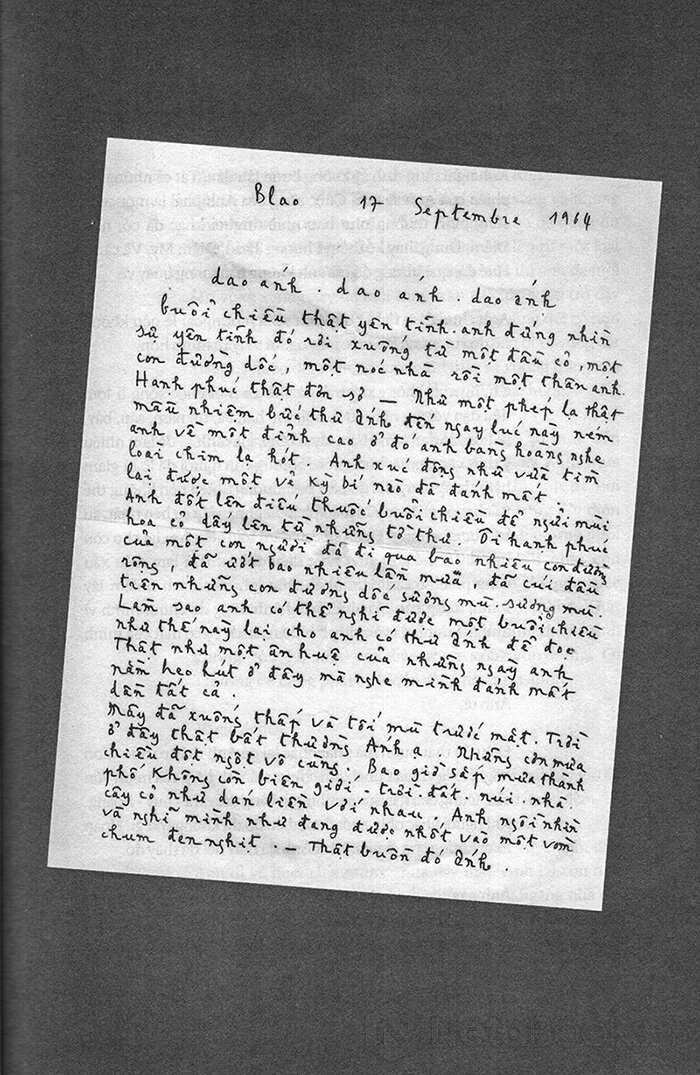 Blao 17 Septembre 1964
dao ánh . dao anh . dao ánh
buổi chiều thật yên tĩnh. anh đứng nhìn
sự yên tĩnh đó rơi xuống từ một đầu cỏ, một
con đường dốc, một nóc nhà rồi một thân anh.
Hạnh phúc thật đơn sơ — Như một phép lạ thật
mầu nhiệm bức thư Ánh đến ngay lúc này ném
anh về một đỉnh cao ở đó anh bàng hoàng nghe
loài chim lạ hót. Anh xúc động như vừa tìm
lại được một vẻ kỳ bí nào đã đánh mất.
Anh đốt lên điếu thuốc buổi chiều để ngửi mùi
hoa cỏ dậy lên từ những tờ thư. Ôi hạnh phúc
của một con người đã đi qua bao nhiêu con đường
rộng, đã ướt bao nhiêu lần mưa, đã cúi đầu
trên những con đường dốc sương mù. sương mù.
Làm sao anh có thể nghĩ được một buổi chiều
như thế này lại cho anh có thư Ánh để đọc
Thật như một ân huệ của những ngày anh
nằm heo hút ở đây mà nghe mình đánh mất
dần tất cả.
Mây đã xuống thấp và tối mù trước mặt. Trời
ở đây thật bất thường Ánh ạ. Những cơn mưa
chiều đột ngột vô cùng. Bao giờ sắp mưa thành
phố không còn biên giới - trời đất, núi, nhà.
cây cỏ như dán liền với nhau. Anh ngồi nhìn
và nghĩ mình như đang được nhốt vào một vòm
chum đen nghịt. — Thật buồn đó Ánh.